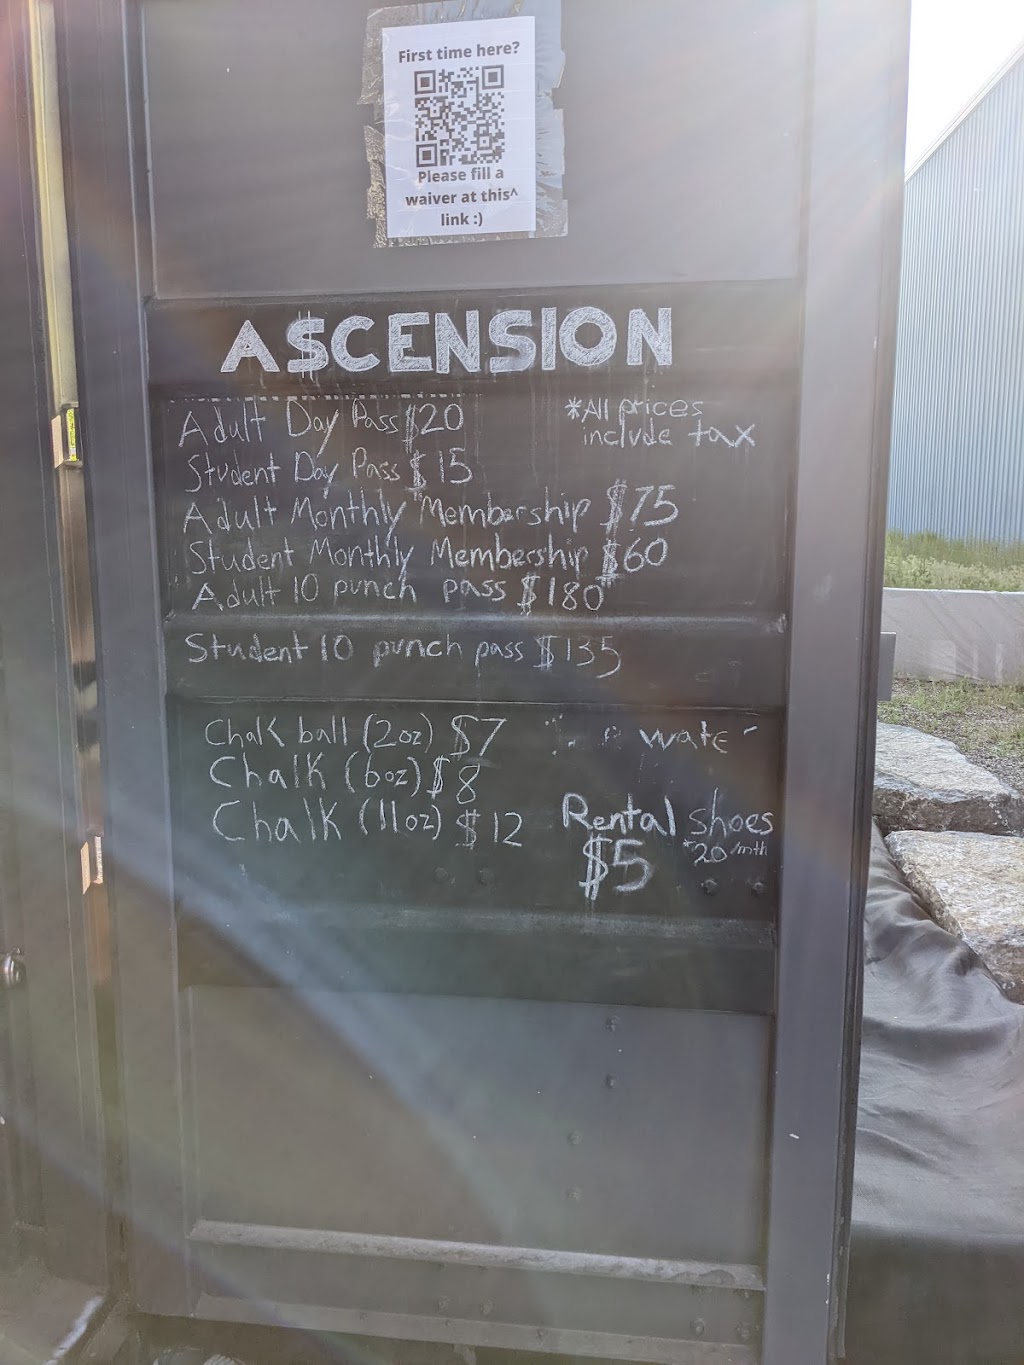 First time here?
Please fill a
waiver at this^
link :)
A$CENSION
Adult Day Pass $20
*All prices
include tax
Student Day Pass $15
Adult Monthly Membership $75
Student Monthly Membership $60
Adult 10 punch pass $180
Student 10 punch pass $135
Chalk ball (2oz) $7
Chalk (6oz) $8
Chalk (11oz) $12
Rental shoes
$5
$20/mth